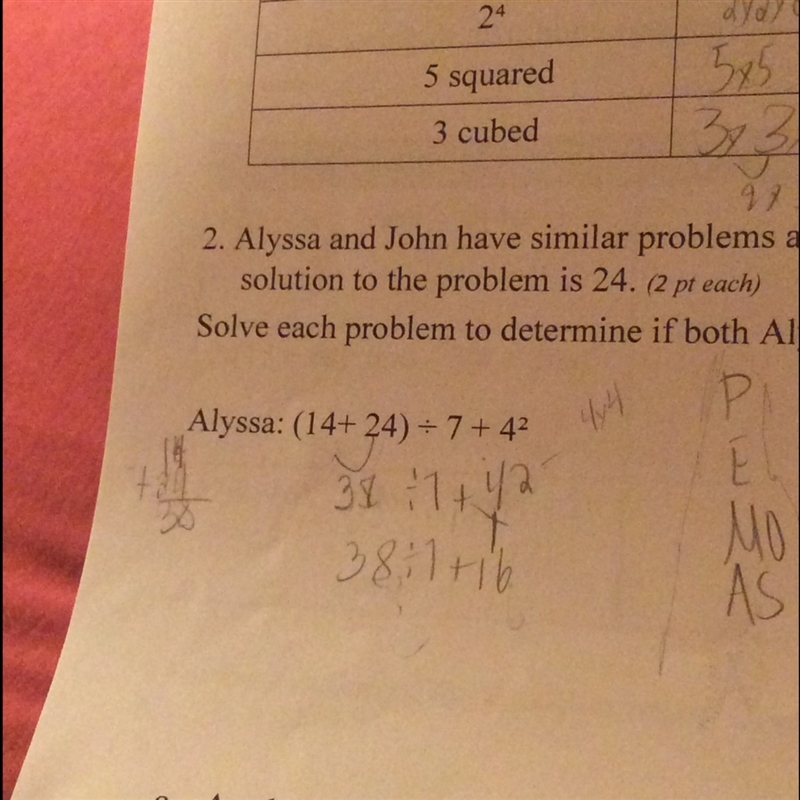 2⁴
5 squared 5x5
3 cubed 3x3
9
2. Alyssa and John have similar problems a
solution to the problem is 24. (2 pt each)
Solve each problem to determine if both Al
Alyssa: (14+ 24) ÷ 7 + 4² 4x4
14
+24
38
38 ÷ 7 + 4²
38 ÷ 7 + 16
P
E
MD
AS